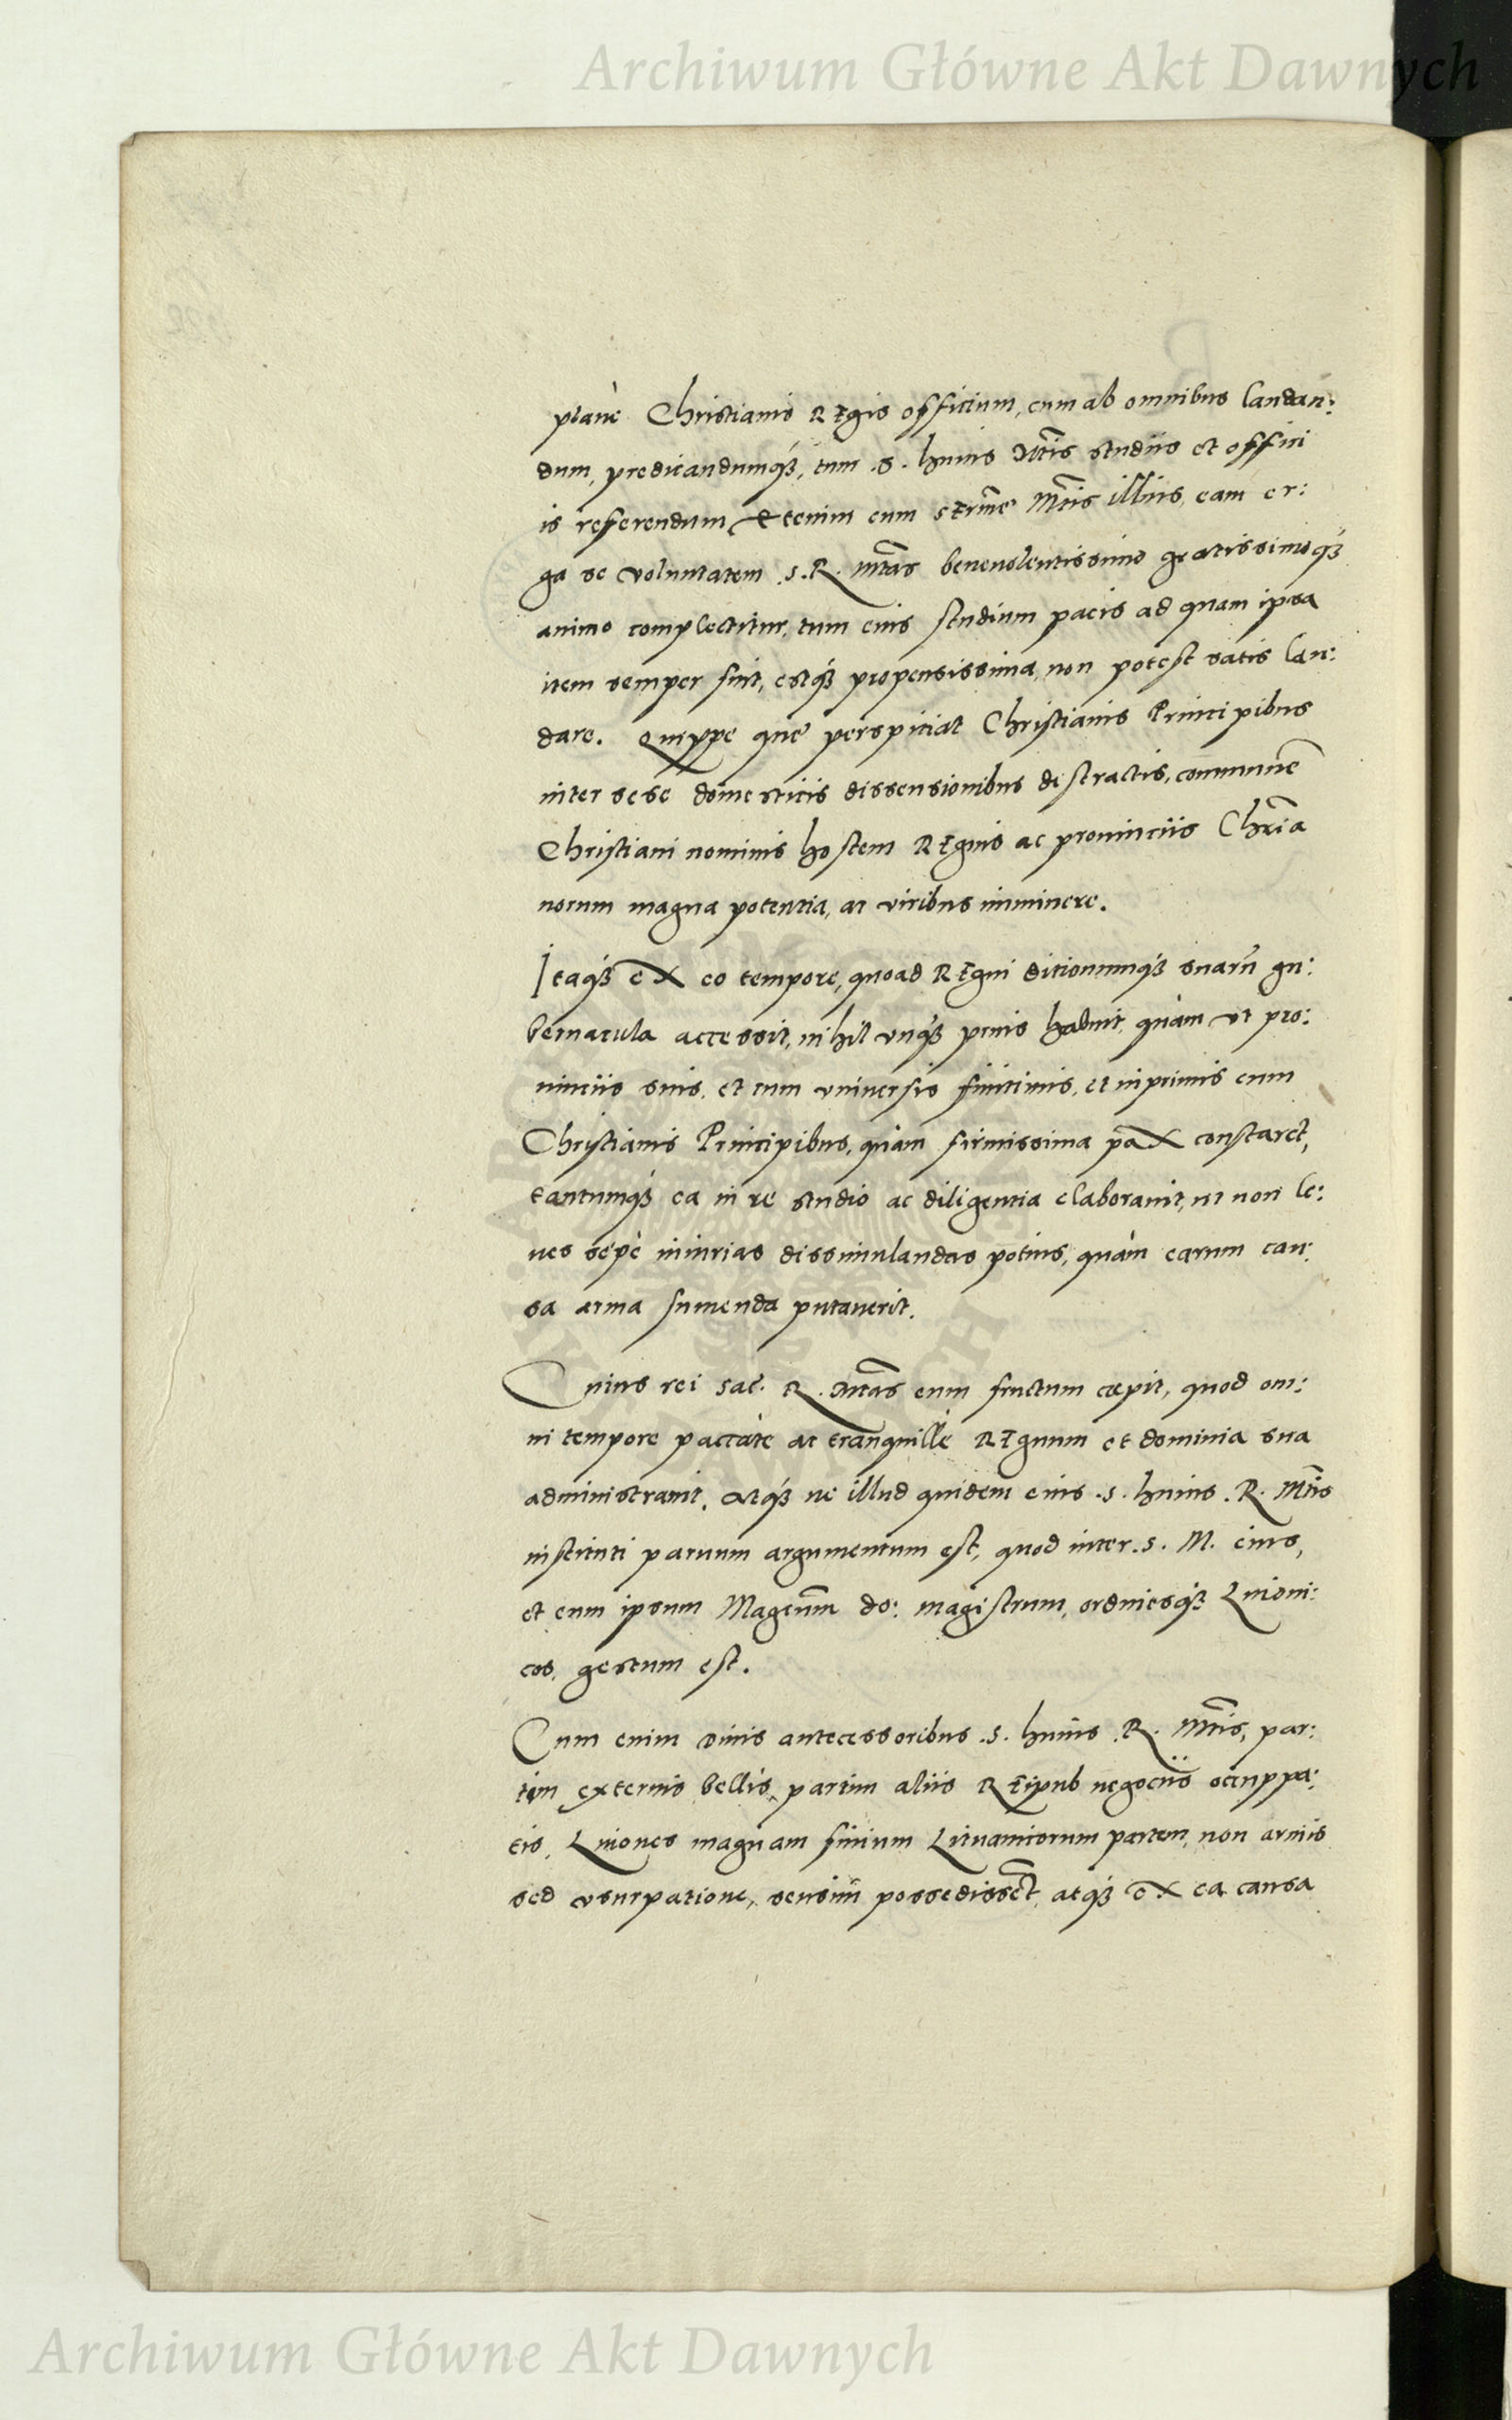 Archiwum Główne Akt Dawnych
planè Christianis Regis officium, cum ab omnibus laudan:
dum, predicandumq́ꝫ, tum .S. huius Mt̃is studiis et offici
is referendum, Etenim cum serm̃e Mt̃is illius, eam er:
ga se voluntatem .S. R. mt̃as beneuolentissimo gratissimoq́ꝫ
animo complectitur, tum eius studium pacis ad quam ipsa
item semper fuit, estq́ꝫ propensissima, non potest satis lau:
dare. Quippe que perspiciat Christianis Principibus
inter sese domesticis dissensionibus distractis, communẽ
Christiani nominis hostem Regnis ac prouinciis Chrĩa
norum magna potentia, ac viribus imminere.
Itaq́ꝫ ex eo tempore, quoad Regni ditionumq́ꝫ suarũ gu:
bernacula accessit, nihil vnq́ꝫ prius habuit, quàm vt pro:
uinciis suis, et cum vniuersis finitimis, et inprimis cum
Christianis Principibus, quàm firmissima pax constaret,
tantumq́ꝫ ea in re studio ac diligentia elaborauit, ut non le:
ues sepè iniurias dissimulandas potius, quàm earum cau:
sa arma sumenda putauerit.
Cuius rei sac. R. mt̃as eum fructum cœpit, quod om:
ni tempore paccatè ac tranquillè Regnum et dominia sua
administrauit, atq́ꝫ ne illud quidem eius .S. huius .R. Mt̃is
instituti paruum argumentum est, quod inter .S. M. eius,
et eum ipsum Magcum̃ do: magistrum, ordinesq́ꝫ Liuoni:
cos, gestum est.
Cum enim diuis antecessoribus .S. huius .R. Mt̃is, par:
tim externis bellis, partim aliis Reipub negociis occuppa:
tis, Liuones magnam finium Lituanicorum partem, non armis
sed vsurpatione, sensim possedissẽt, atq́ꝫ ex ea causa
Archiwum Główne Akt Dawnych